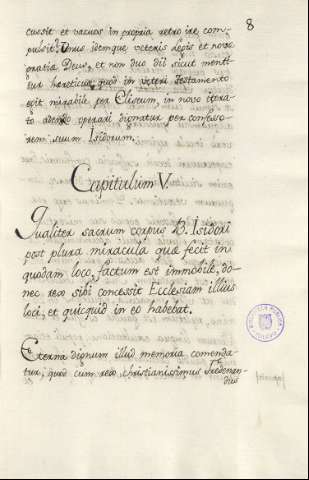 8
cussit et vacuos in propria retro ire com-
pulsit. Unus idemque veteris legis et novæ
gratiæ Deus, et non duo Dii sicut menti-
tur hæreticus, quod in veteri Testamento
egit mirabile per Eliseum, in novo itera-
to adeo operari dignatur per confesso-
rem suum Isidorum.
Capitulum V.
Qualiter sacrum corpus B. Isidori
post plura miracula quæ fecit in
quodam loco, factum est immobile, do-
nec rex sibi concessit Ecclesiam illius
loci, et quicquid in eo habebat.
Eterna dignum illud memoria comenda-
tur, quod cum rex christianissimus Fredenan-
dus